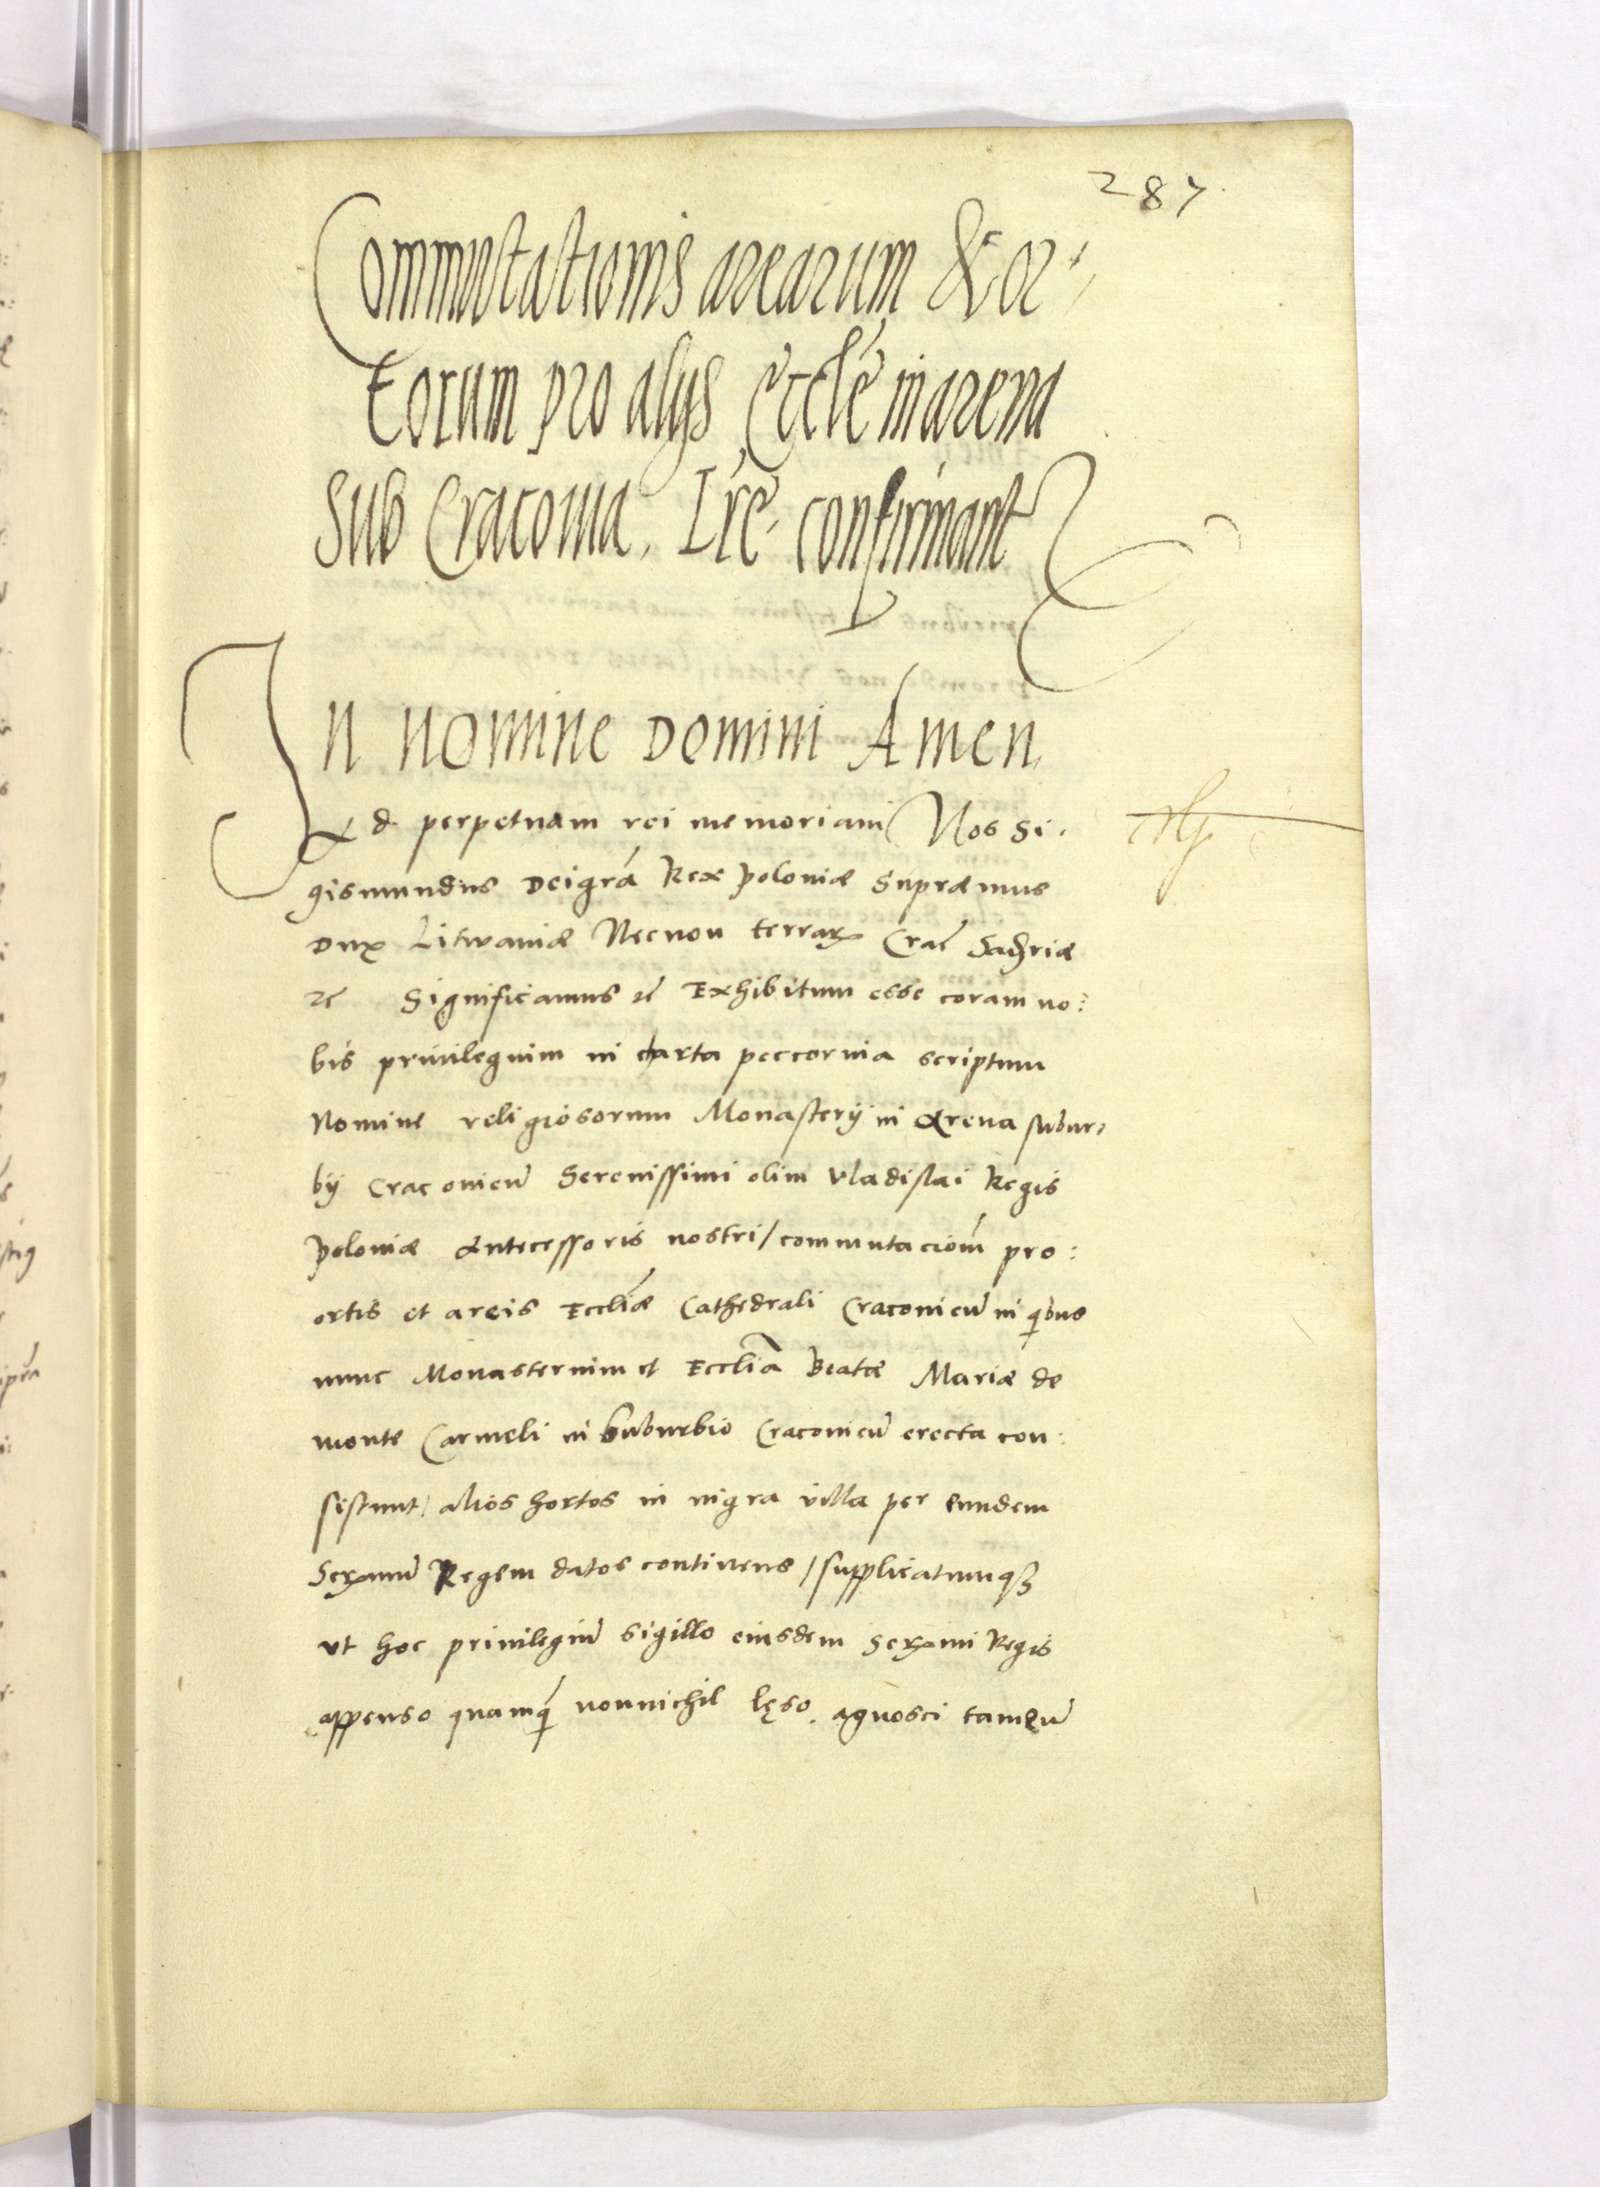 287
Commutationis arearum & or-
torum pro alijs Eccłe in arena
sub Cracovia. Lrẽ confirmant
In nomine Domini Amen.
Ad perpetuam rei memoriam Nos Si-
gismundus Deigrã Rex poloniæ Supræmus
Dux Litwaniæ Necnon terrarꝝ Crac̃
zc̃ Significamus zc̃ Exhibitum esse coram no:
bis privilegium in charta peccorina scriptum
Nomine religiosorum Monasterij in Arena subur-
bij Cracovien̄ Serenissimi olim Vladislai Regis
poloniæ Antecessoris nostri / commutacionẽ pro:
ortis et areis Eccliæ Cathedrali Cracovien̄ in qibus
nunc Monasterium et Ecclia Beatæ Mariæ de
monte Carmeli in suburbio Cracovien̄ erecta con:
sistunt / alios hortos in nigra villa per eundem
Regem datos continens / supplicatumqꝫ
ut hoc privilegiũ sigillo eiusdem Regis
appenso quamq̃ nonnichil lęso, agnosci tameñ